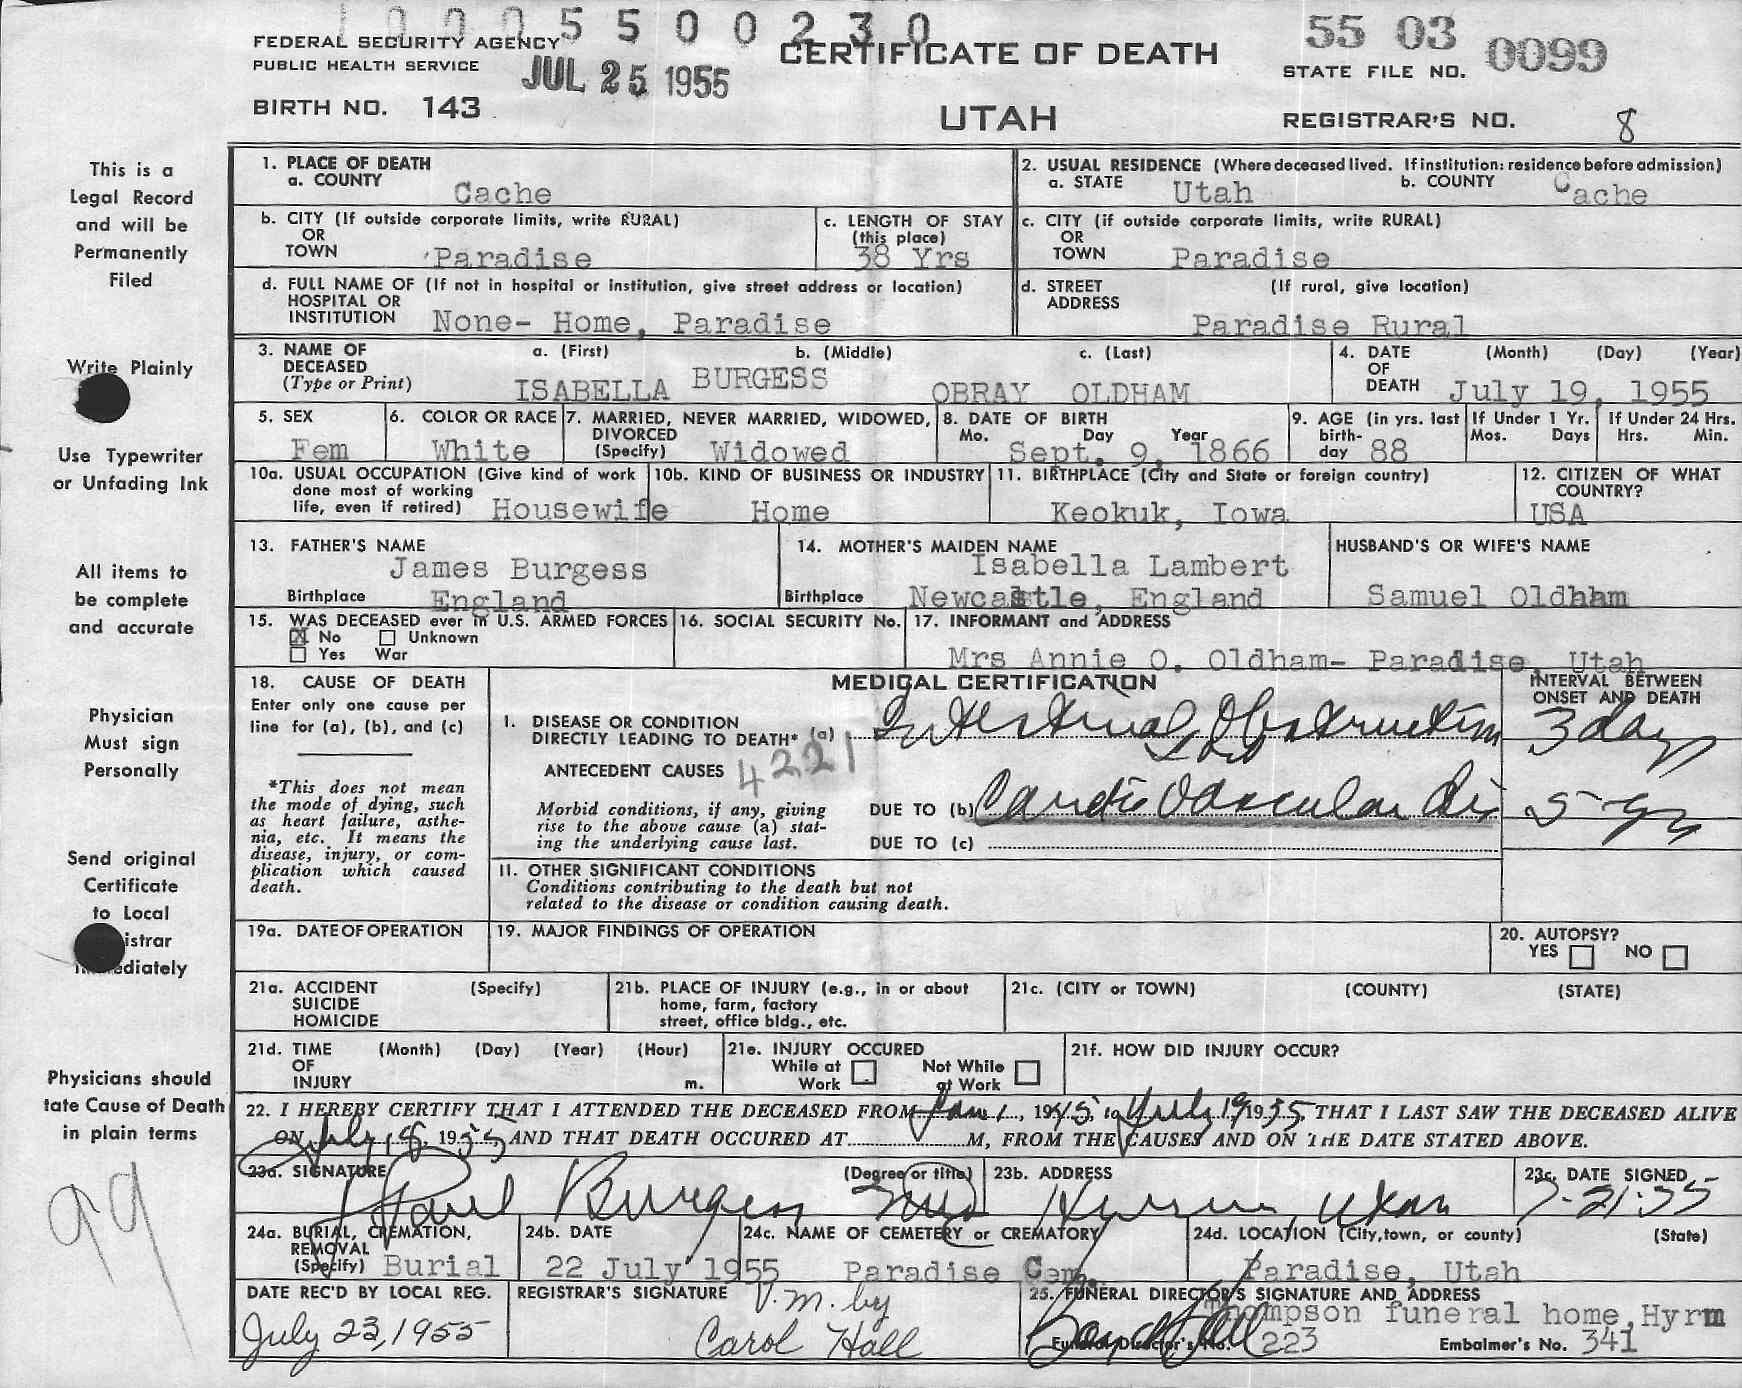 1000 5 5 0 0 2 3 0
55 03
FEDERAL SECURITY AGENCY
CERTIFICATE OF DEATH
PUBLIC HEALTH SERVICE
JUL 25 1955
STATE FILE NO. 0099
BIRTH NO. 143
UTAH
REGISTRAR'S NO. 8
This is a
Legal Record
and will be
Permanently
Filed
Write Plainly
Use Typewriter
or Unfading Ink
All items to
be complete
and accurate
Physician
Must sign
Personally
Send original
Certificate
to Local
istrar
ediately
Physicians should
tate Cause of Death
in plain terms
99
1. PLACE OF DEATH
a. COUNTY
Cache
2. USUAL RESIDENCE (Where deceased lived. If institution: residence before admission)
a. STATE Utah b. COUNTY Cache
b. CITY (If outside corporate limits, write RURAL)
OR
TOWN Paradise
c. LENGTH OF STAY
(this place)
38 Yrs
c. CITY (if outside corporate limits, write RURAL)
OR
TOWN Paradise
d. FULL NAME OF (If not in hospital or institution, give street address or location)
HOSPITAL OR
INSTITUTION None- Home, Paradise
d. STREET (If rural, give location)
ADDRESS
Paradise Rural
3. NAME OF a. (First) b. (Middle) c. (Last)
DECEASED
(Type or Print) ISABELLA BURGESS OBRAY OLDHAM
4. DATE (Month) (Day) (Year)
OF
DEATH July 19, 1955
5. SEX
Fem
6. COLOR OR RACE
White
7. MARRIED, NEVER MARRIED, WIDOWED,
DIVORCED
(Specify) Widowed
8. DATE OF BIRTH
Mo. Day Year
Sept. 9, 1866
9. AGE (in yrs. last
birth-
day 88
If Under 1 Yr.
Mos. Days
If Under 24 Hrs.
Hrs. Min.
10a. USUAL OCCUPATION (Give kind of work
done most of working
life, even if retired) Housewife
10b. KIND OF BUSINESS OR INDUSTRY
Home
11. BIRTHPLACE (City and State or foreign country)
Keokuk, Iowa
12. CITIZEN OF WHAT
COUNTRY?
USA
13. FATHER'S NAME
James Burgess
Birthplace England
14. MOTHER'S MAIDEN NAME
Isabella Lambert
Birthplace Newcastle, England
HUSBAND'S OR WIFE'S NAME
Samuel Oldham
15. WAS DECEASED ever in U.S. ARMED FORCES
X No Unknown
Yes War
16. SOCIAL SECURITY No.
17. INFORMANT and ADDRESS
Mrs Annie O. Oldham- Paradise, Utah
18. CAUSE OF DEATH
Enter only one cause per
line for (a), (b), and (c)
*This does not mean
the mode of dying, such
as heart failure, asthe-
nia, etc. It means the
disease, injury, or com-
plication which caused
death.
MEDICAL CERTIFICATION
INTERVAL BETWEEN
ONSET AND DEATH
I. DISEASE OR CONDITION
DIRECTLY LEADING TO DEATH* (a) Intestinal Obstruction 3 days
ANTECEDENT CAUSES 4221
Morbid conditions, if any, giving
rise to the above cause (a) stat-
ing the underlying cause last.
DUE TO (b) Cardio Vascular Dis 5 yrs
DUE TO (c)
II. OTHER SIGNIFICANT CONDITIONS
Conditions contributing to the death but not
related to the disease or condition causing death.
19a. DATE OF OPERATION
19. MAJOR FINDINGS OF OPERATION
20. AUTOPSY?
YES NO
21a. ACCIDENT (Specify)
SUICIDE
HOMICIDE
21b. PLACE OF INJURY (e.g., in or about
home, farm, factory
street, office bldg., etc.
21c. (CITY or TOWN) (COUNTY) (STATE)
21d. TIME (Month) (Day) (Year) (Hour)
OF
INJURY m.
21e. INJURY OCCURED
While at Not While
Work at Work
21f. HOW DID INJURY OCCUR?
22. I HEREBY CERTIFY THAT I ATTENDED THE DECEASED FROM Jan 1, 1945, to July 19 1955, THAT I LAST SAW THE DECEASED ALIVE
ON July 18, 1955 AND THAT DEATH OCCURED AT M, FROM THE CAUSES AND ON THE DATE STATED ABOVE.
23a. SIGNATURE (Degree or title)
Paul Burgess MD
23b. ADDRESS
Hyrum, Utah
23c. DATE SIGNED
7-21-55
24a. BURIAL, CREMATION,
REMOVAL
(Specify) Burial
24b. DATE
22 July 1955
24c. NAME OF CEMETERY or CREMATORY
Paradise Cem.
24d. LOCATION (City, town, or county) (State)
Paradise, Utah
DATE REC'D BY LOCAL REG.
July 23, 1955
REGISTRAR'S SIGNATURE V.M. by
Carol Hall
25. FUNERAL DIRECTOR'S SIGNATURE AND ADDRESS
Thompson funeral home, Hyrm
Funeral Director's No. 223 Embalmer's No. 341